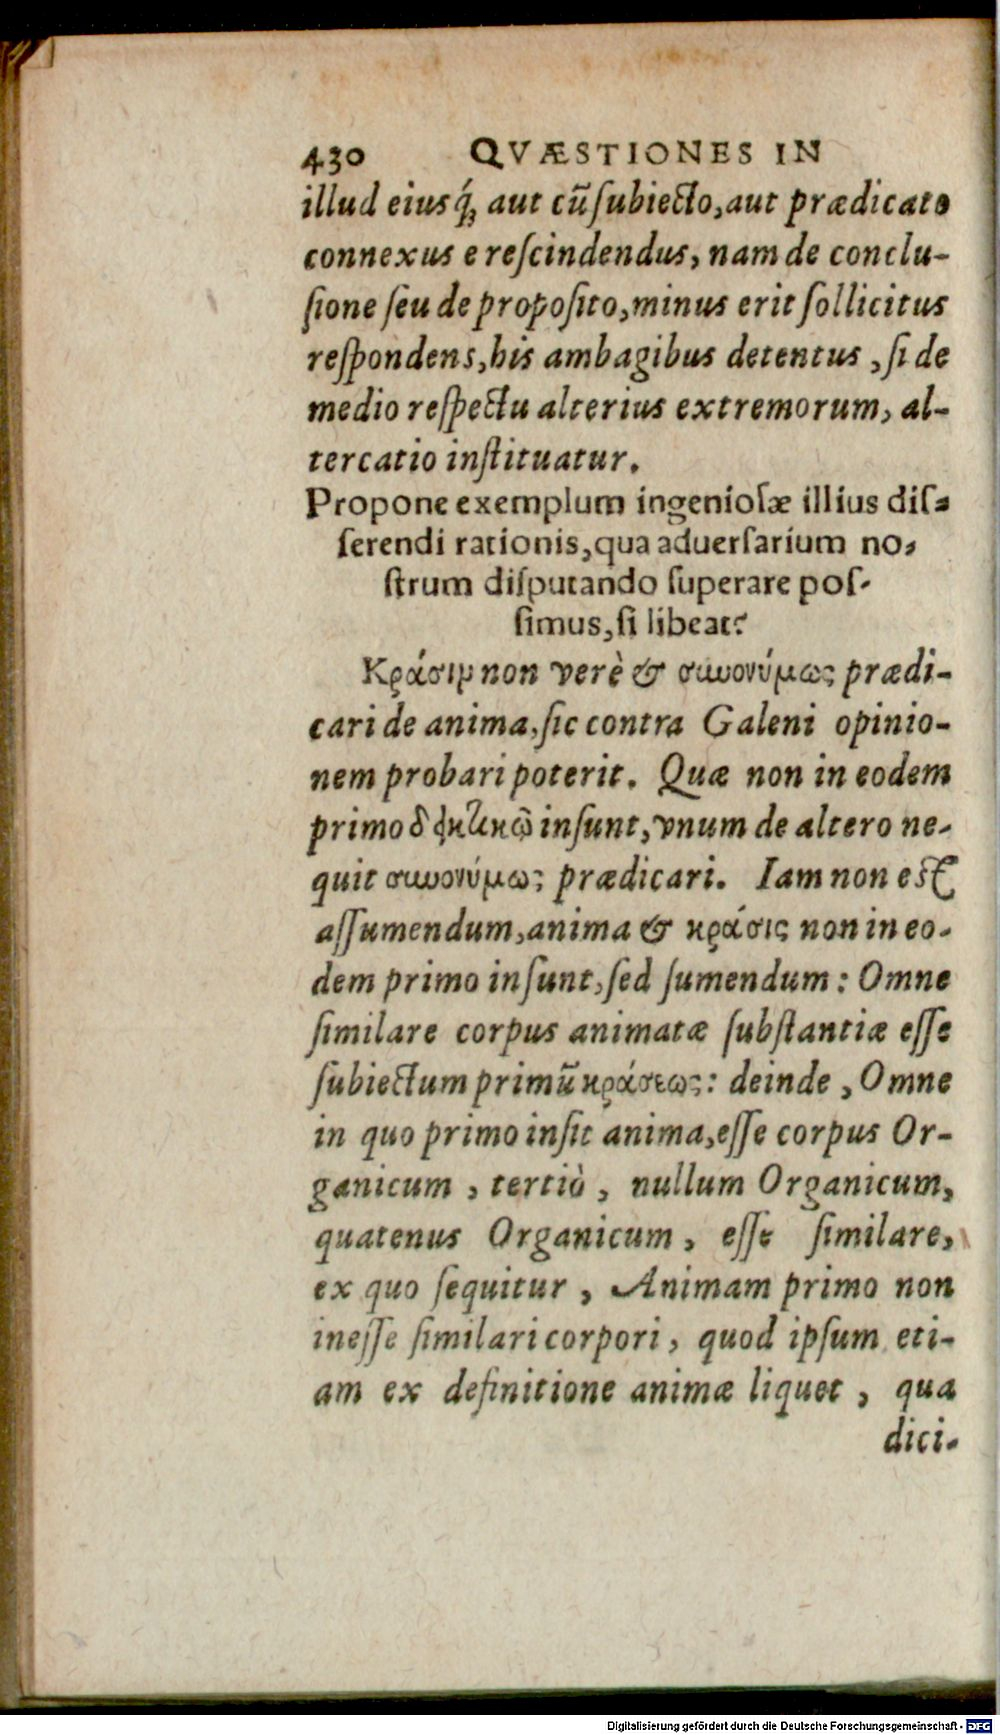 430 QVÆSTIONES IN
illud eiusq́ꝫ aut cũ ſubiecto, aut prædicato
connexus e reſcindendus, nam de conclu-
ſione ſeu de propoſito, minus erit ſollicitus
reſpondens, his ambagibus detentus, ſi de
medio reſpectu alterius extremorum, al-
tercatio inſtituatur.
Propone exemplum ingenioſæ illius diſ-
ſerendi rationis, qua aduerſarium no-
ſtrum diſputando ſuperare poſ-
ſimus, ſi libeat?
Κράσιμ non verè & συνονύμως prædi-
cari de anima, ſic contra Galeni opinio-
nem probari poterit. Quæ non in eodem
primo δεκτικῷ inſunt, vnum de altero ne-
quit συνονύμως prædicari. Iam non eſt
aſſumendum, anima & κράσις non in eo-
dem primo inſunt, ſed ſumendum: Omne
ſimilare corpus animatæ ſubſtantiæ eſſe
ſubiectum primũ κράσεως: deinde, Omne
in quo primo inſit anima, eſſe corpus Or-
ganicum, tertiò, nullum Organicum,
quatenus Organicum, eſſe ſimilare,
ex quo ſequitur, Animam primo non
ineſſe ſimilari corpori, quod ipſum eti-
am ex definitione animæ liquet, qua
dici-
Digitalisierung gefördert durch die Deutsche Forschungsgemeinschaft - DFG